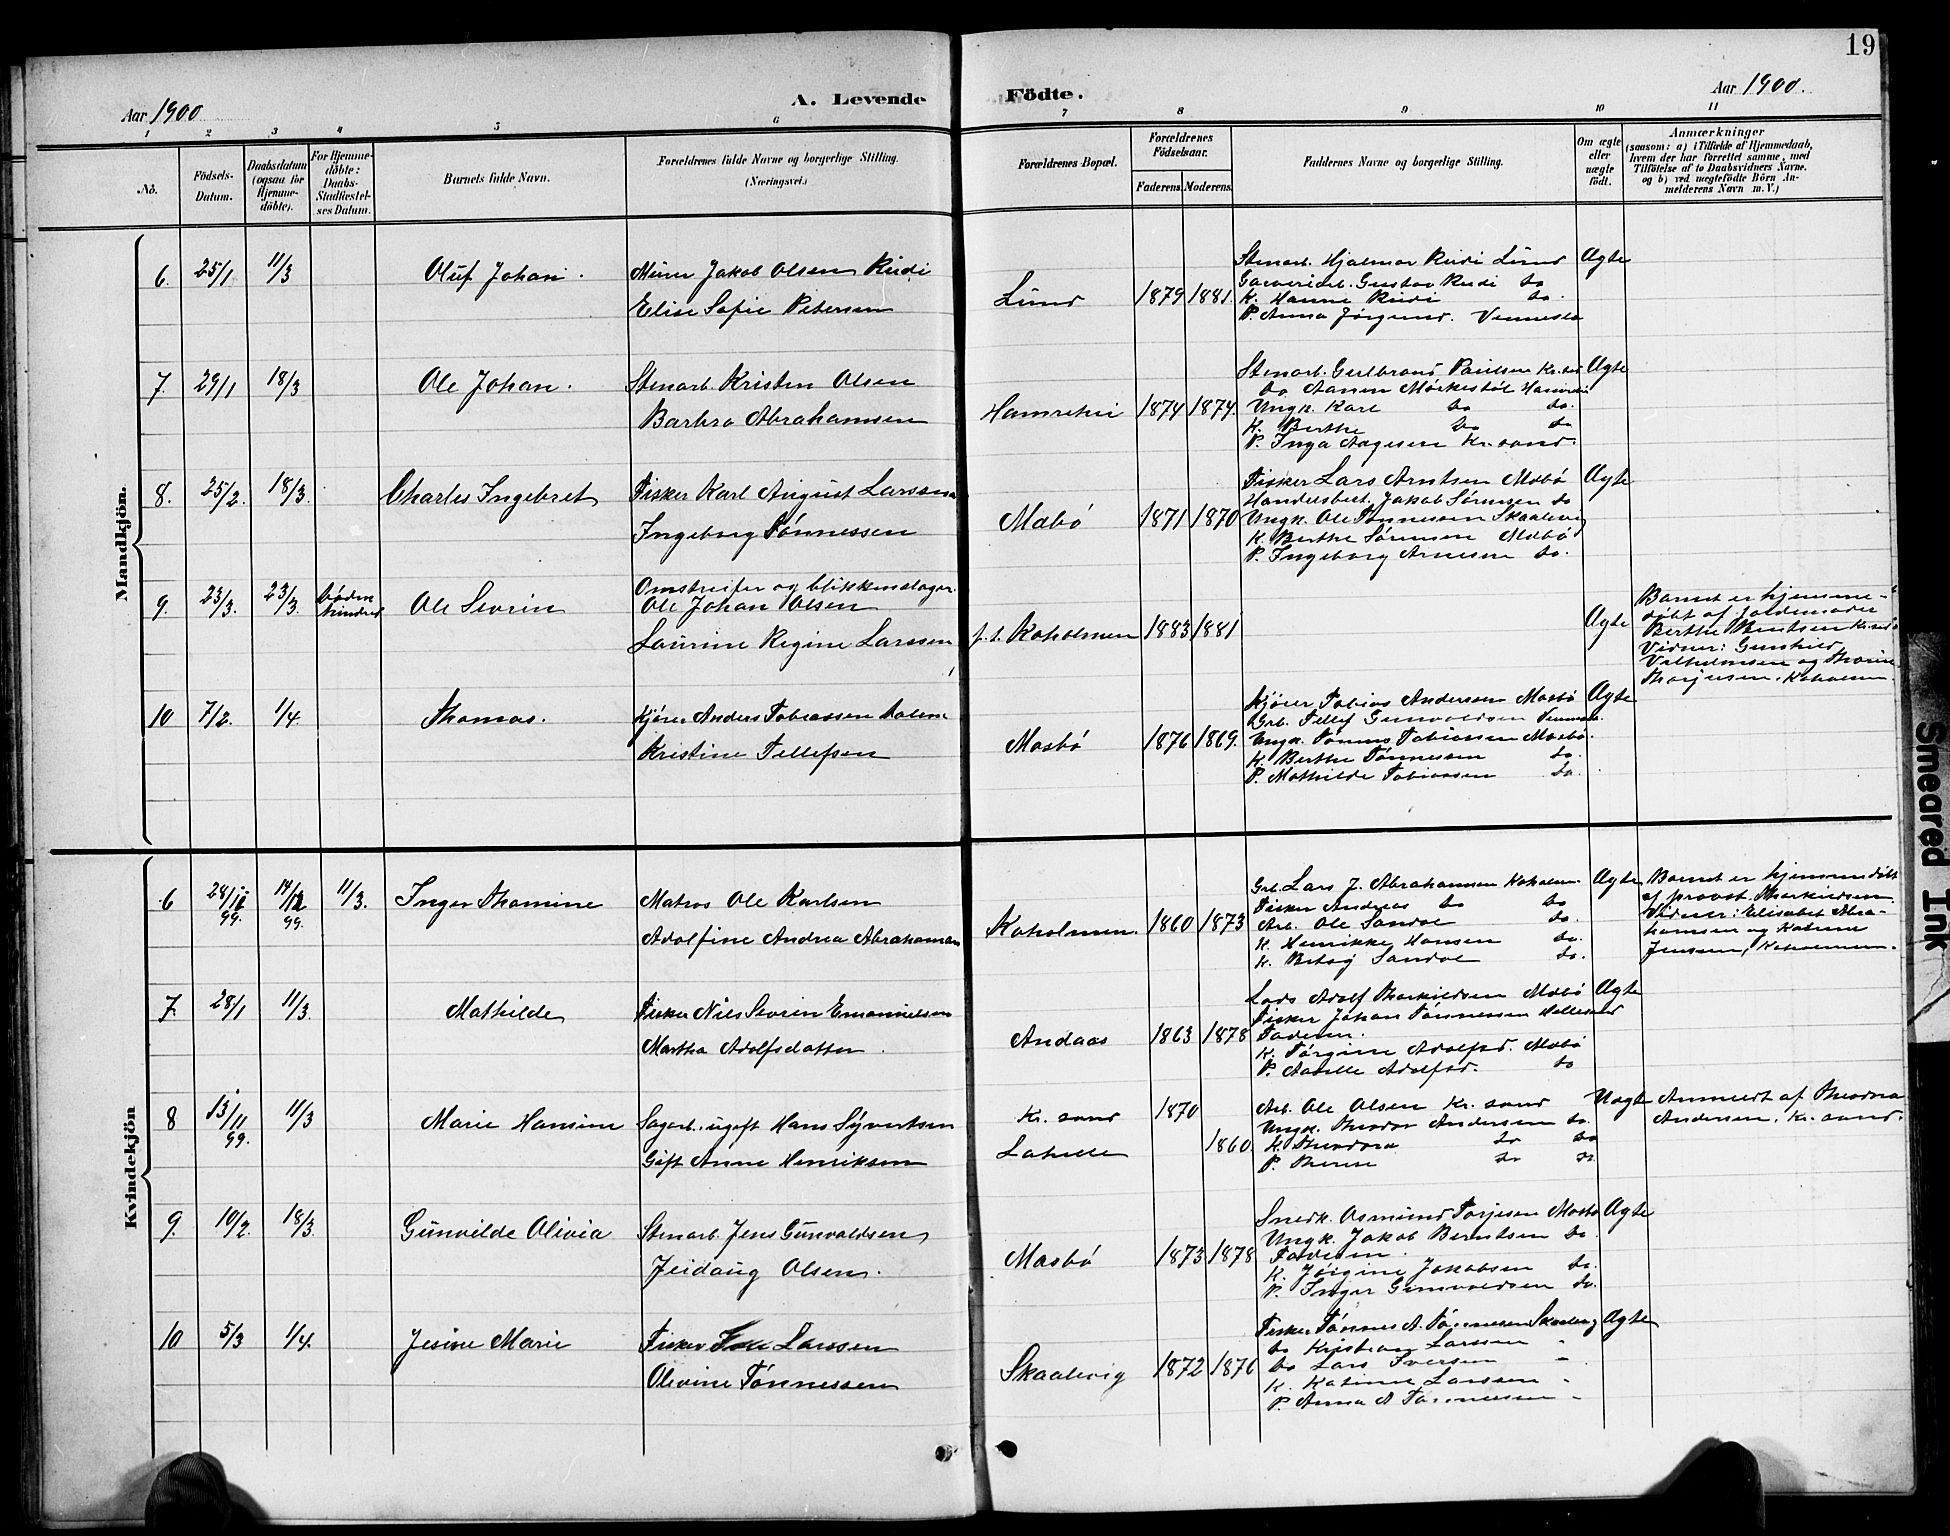 19
Aar 1900
A. Levende
Födte.
Aar 1900.
1 2 3 4 5 6 7 8 9 10 11
No.
Födsels-
Datum.
Daabsdatum
(ogsaa for
Hjemme-
döbte).
For Hjemme-
döbte:
Daabs-
Stadfæstel-
ses Datum.
Barnets fulde Navn.
Forældrenes fulde Navne og borgerlige Stilling.
(Næringsvei.)
Forældrenes Bopæl.
Forældrenes
Födselsaar.
Faderens.
Moderens.
Faddernes Navne og borgerlige Stilling.
Om ægte
eller
uægte
født.
Anmærkninger
(saasom: a) i Tilfælde af Hjemmedaab,
hvem der har forrettet samme, med
Tilföielse af to Daabsvidners Navne.
og b) ved uægtefödte Börn An-
melderens Navn m. V.)
Mandkjön.
6. 25/1 11/3 Oluf Johan.
Murer Jakob Olsen Rudi
Elise Sofie Petersen
Lund 1879 1881.
Stenarb. Hjalmar Rudi Lund
Gustav Rudi do
K. Hanne Rudi do.
P. Anna Jørgensd. Vennesla
Ægte
7. 29/1 18/3 Ole Johan.
Stenarb. Kristen Olsen
Barbro Abrahamsen
1874 1874.
Stenarb. Gulbrand Paulsen Kr.sd
do Aanen
Ungk. Karl do do.
K. Berthe do do
P. Inga Aagesen Kr.sand.
Ægte
8. 25/2. 18/3. Charles Ingebret
Fisker Karl August Larsen
Ingeborg Tönnessen
Mæbö 1871 1870
Fisker Lars Arntsen Mæbö
Handelsbest. Jakob Sörensen do
Ungk. Ole Tönnessen Skaalevig
K. Berthe Sörensen Mæbö
P. Ingeborg Arnesen do.
Ægte
9. 23/3. 23/3. Döden
hindred
Ole Sevrin
Omstreifer og blikkenslager
Ole Johan Olsen
Laurine Regine Larssen
p. t. Koholmen 1883 1881
Ægte
Barnet er hjemme-
döbt af Jordemoder
Berthe Berntsen Kr.sand
Vidner: Gunhild
Vilhelmsen og
Koholmen.
10 7/2. 1/4. Thomas.
Kjörer Anders Tobiassen
Kristine Tellefsen
Mosbö 1876 1869.
Kjörer Tobias Andersen Mosbö
Grb. Tellef Gunvoldsen
Ungk. Tönnes Tobiassen Mosbö.
K. Berthe Tönnessen do.
P. Mathilde Tobiassen do.
Ægte
Kvindekjön
6 99. 99. 11/3. Inger Thomine
Matros Ole Karlsen
Adolfine Andrea Abrahamsen
Koholmen. 1860 1873
Grb. Lars J. Abrahamsen Koholm.
Fisker Andreas do do
Arb. Ole Sandoe do.
K. Henrikke Hansen do.
K. Betsy Sandoe do.
Ægte
Barnet er hjemmedöbt
af provst Thorkildsen
Vidner: Elisabet Abra-
hamsen og Katrine
Jenssen, Koholmen.
7. 28/1 11/3. Mathilde
Fisker Nils Sevrin Emanuelsen
Martha Adolfsdatter.
Andaas 1863 1878
Lods Adolf Thorkildsen Mæbö
Fisker Johan Tönnessen Hellesund
Faderen.
K. Törgine Adolfsd. Mæbö
P. Adolfsd. do
Ægte
8 13/11 99. 11/3 Marie Hansine
Sagarb. ugift Hans Syvertsen
Gift Anne Henriksen
Kr. sand 1870
1860.
Arb. Ole Olsen Kr. sand
Ungk. Theodor Andersen do.
K. Theodora do do
P. do do.
Uægte
Anmeldt af Theodora
Andersen, Kr. sand.
9. 10/2. 18/3. Gunvilde Olivia
Stenarb. Jens Gunvaldsen
Jeidaug Olsen.
Mosbö 1873 1878
Snedk. Osmund Torjesen Mosbö
Ungk. Jakob Berntsen do.
Faderen.
K. Jörgine Jakobsen do.
P. Inger Gunvaldsen do.
Ægte
10 5/3 1/4. Jesine Marie
Fisker Larssen
Olevine Tönnessen
Skaalevig 1872 1876
Fisker Tönnes A. Tönnessen Skaalevig
do Kristian Larssen "
do Lars Iversen "
K. Katrine Larssen "
P. Anna A Tönnessen "
Ægte
Smeared Ink